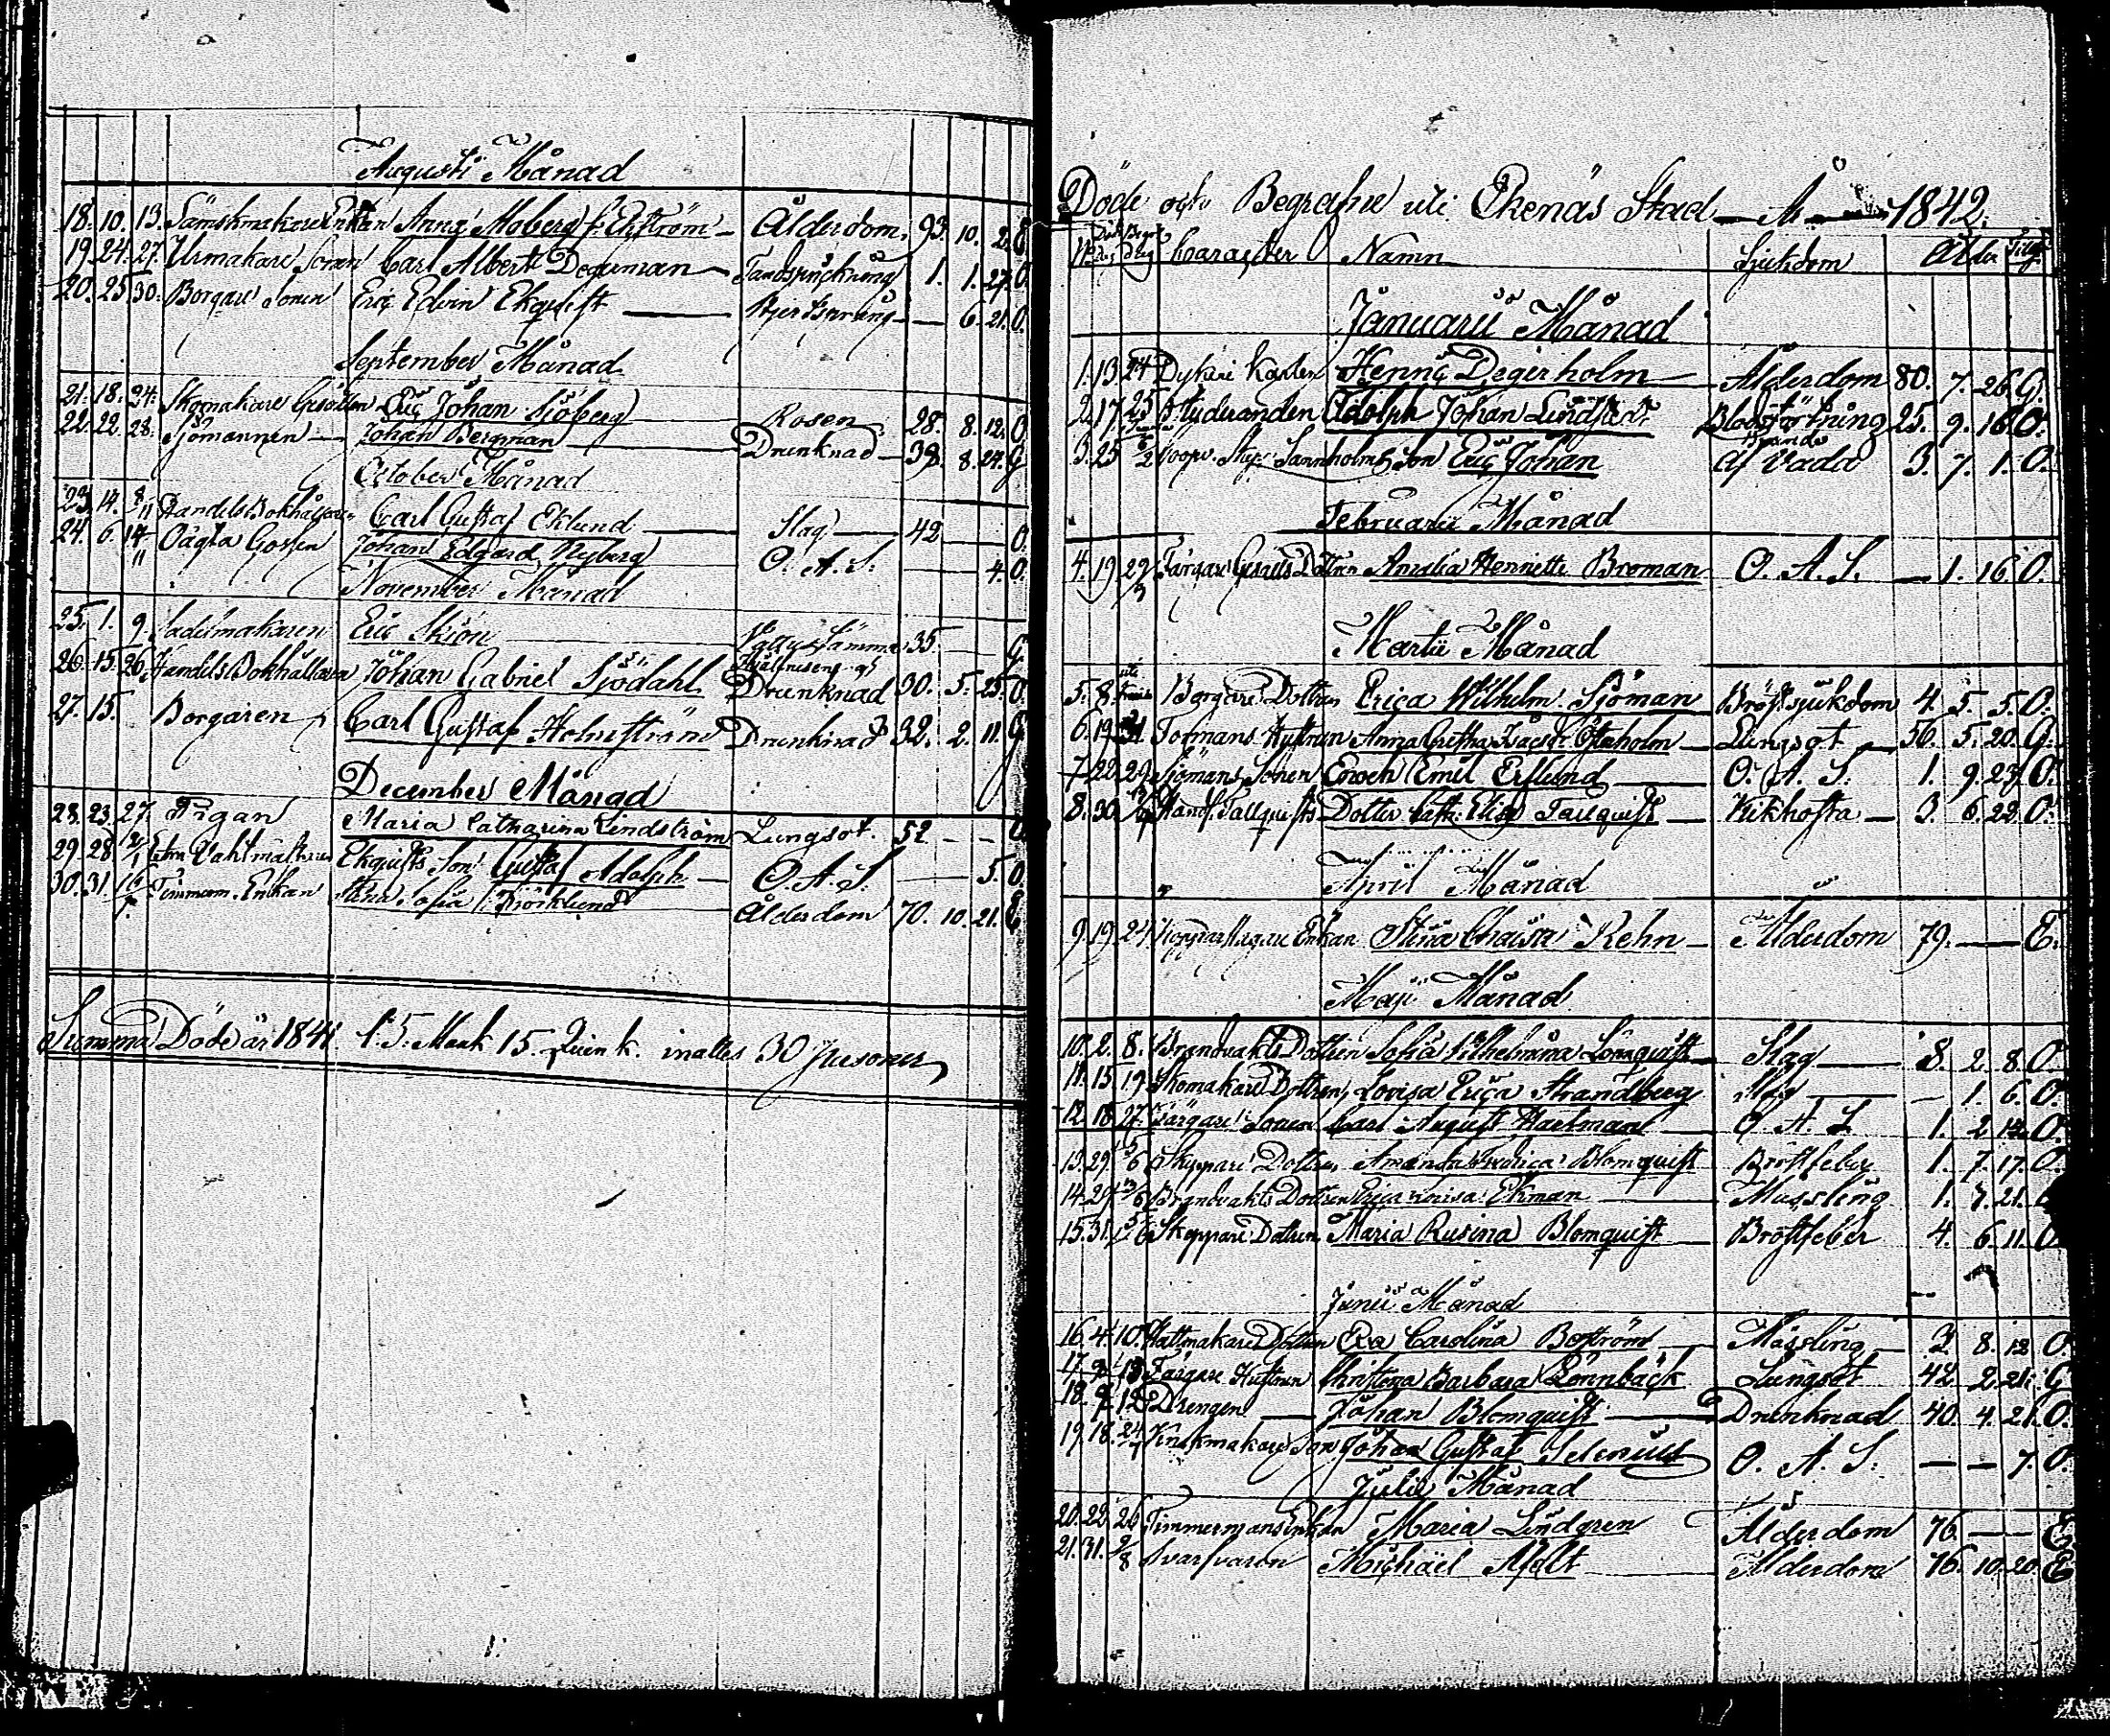 Augusti Månad
18. 10. 13. Sämskmakare Enkan Anna Moberg f. Ekström Ålderdom. 93. 10. 2. E
19. 24. 27. Urmakare Sonen Carl Albert Degerman Tandsprickning 1. 1. 27. O.
20. 25. 30. Borgare Sonen Eric Edvin Ekquist 6. 21. O.
September Månad
21. 18. 24. Skomakare Gesällen Eric Johan Sjöberg Rosen 28. 8. 12. O
22. 22. 28. Sjömannen Johan Bergman Drunknad 38. 8. 24. G
October Månad
23. 14. 8/11 Handels Bokhållaren Carl Gustaf Eklund Slag 42 O.
24. 6. 14/11 Oägta Gossen Johan Edgard Nyberg O. A. S. 4. O.
November Månad
25. 1. 9. Sadelmakaren Eric Skiön 35. G
26. 15. 26. Handels Bokhållaren Johan Gabriel Sjödahl Drunknad 30. 5. 25. O.
27. 15. Borgaren Carl Gustaf Holmström Drunknad 32. 2. 11. G
December Månad
28. 23. 27. Pigan Maria Catharina Lindström Lungsot. 52 O
29. 28 Vaktmästaren Ekquists Son Gustaf Adolph O. A. S. 5. O.
30. 31. Timmerm. Enkan Sofia Björklund Ålderdom 70. 10. 21. E
Summa Döde år 1841. 15. Mank 15. Quink. inalles 30 personer
Döde och Begrafne uti Ekenäs Stad År 1842.
Caracter Namn Sjukdom Ålder
Januarii Månad
1. 13. 24 Henric Degerholm Ålderdom 80. 7. 26. G.
2. 17. 25 Studeranden Adolph Johan Lindstedt Blodstörtning 25. 9. 16. O.
3. 25 Sannholms Son Eric Johan Af Våda 3. 7. 1. O.
Februarii Månad
4. 19. Färgare Gesälls Dottren Amalia Henriette Broman O. A. S. 1. 16. O.
Martii Månad
5. 8. Borgare Dottren Erica Wilhelm. Sjöman Bröstsjukdom 4. 5. 5. O.
6. 19. 31 Tomans Hustrun Anna Österholm Lungsot 56. 5. 20. G.
7. 22. 29 Sjömans Sonen Enoch Emil Erslund O. A. S. 1. 9. 23. O.
8. 30. Handl. Tallquists Dotter Cath. Elise Tallquist Kikhosta 3. 6. 28. O.
April Månad
9. 19. 24 Enkan Stina Chaisa Rehn Ålderdom 79. E.
Maji Månad
10. 2. 8. Brandvakts Dottren Sofia Vilhelmina Lönnquist Slag 8. 2. 8. O.
11. 15. 19 Skomakare Dottren Lovisa Erica Strandberg Slag 1. 6. O.
12. 18. 27. Färgare Sonen Carl August Hartman O. A. S. 1. 2. 12. O.
13. 29. 5/6 Skeppare Dottren Amanda Fredrica Blomquist Bröstfeber 1. 7. 17. O.
14. 29. Brandvakts Dottren Erica Lovisa Ekman Massling 1. 7. 21.
15. 31. 5/6 Skeppare Dottren Maria Rusina Blomquist Bröstfeber 4. 6. 11. O.
Junii Månad
16. 4. 10. Hattmakare Dottren Eva Carolina Boström Massling 2 8. 12 O.
17. 13 Färgare Hustrun Christina Barbara Rönnbäck Lungsot 42 2. 21. G
18. 9. 12 Drengen Johan Blomquist Drunknad 40. 4. 21. O.
19. 18. 24 Son Johan Gustaf O. A. S. 7. O.
Julii Månad
20. 22. 26 Timmermans Enkan Maria Lindgren Ålderdom 76. E
21. 31. 2/8 Svarfvaren Michael Ålderdom 76. 10. 20. E